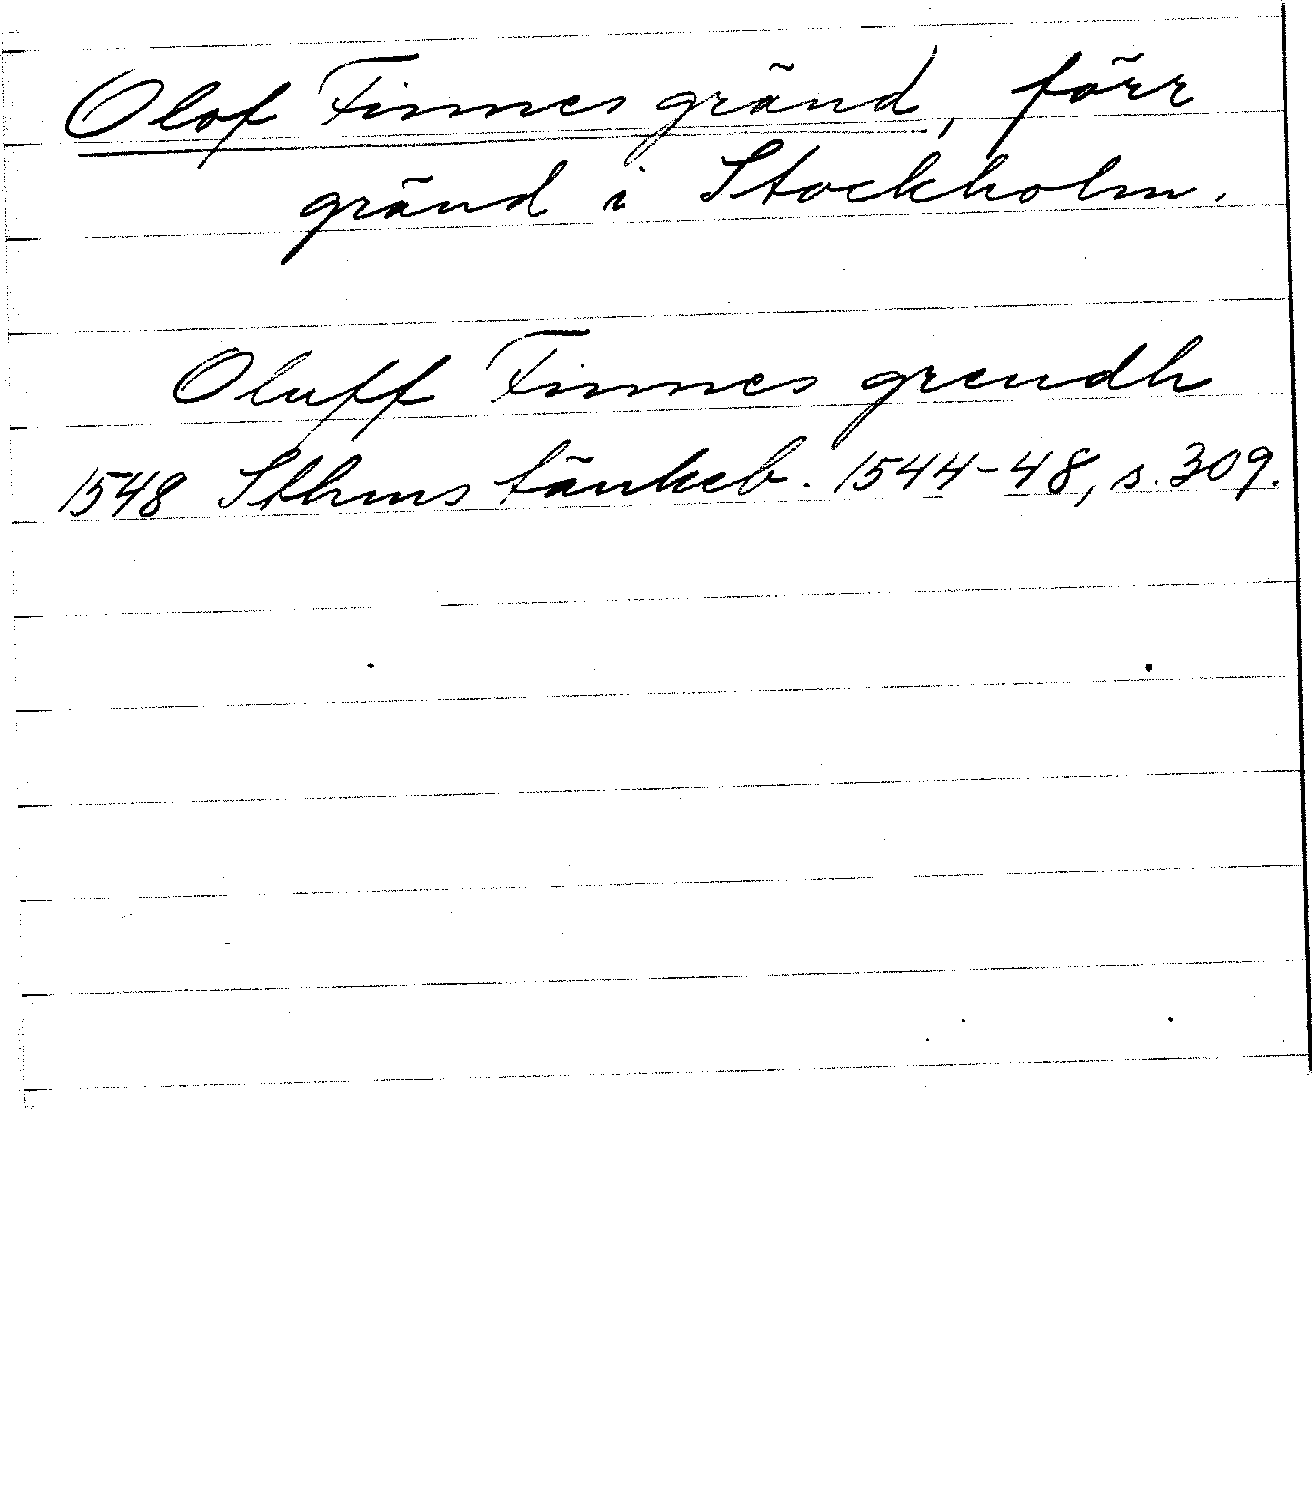 Olof Finnes gränd, förr
gränd i Stockholm.
Oluff Finnes grendh
1548 Sthms tänkeb. 1544-48, s. 309.